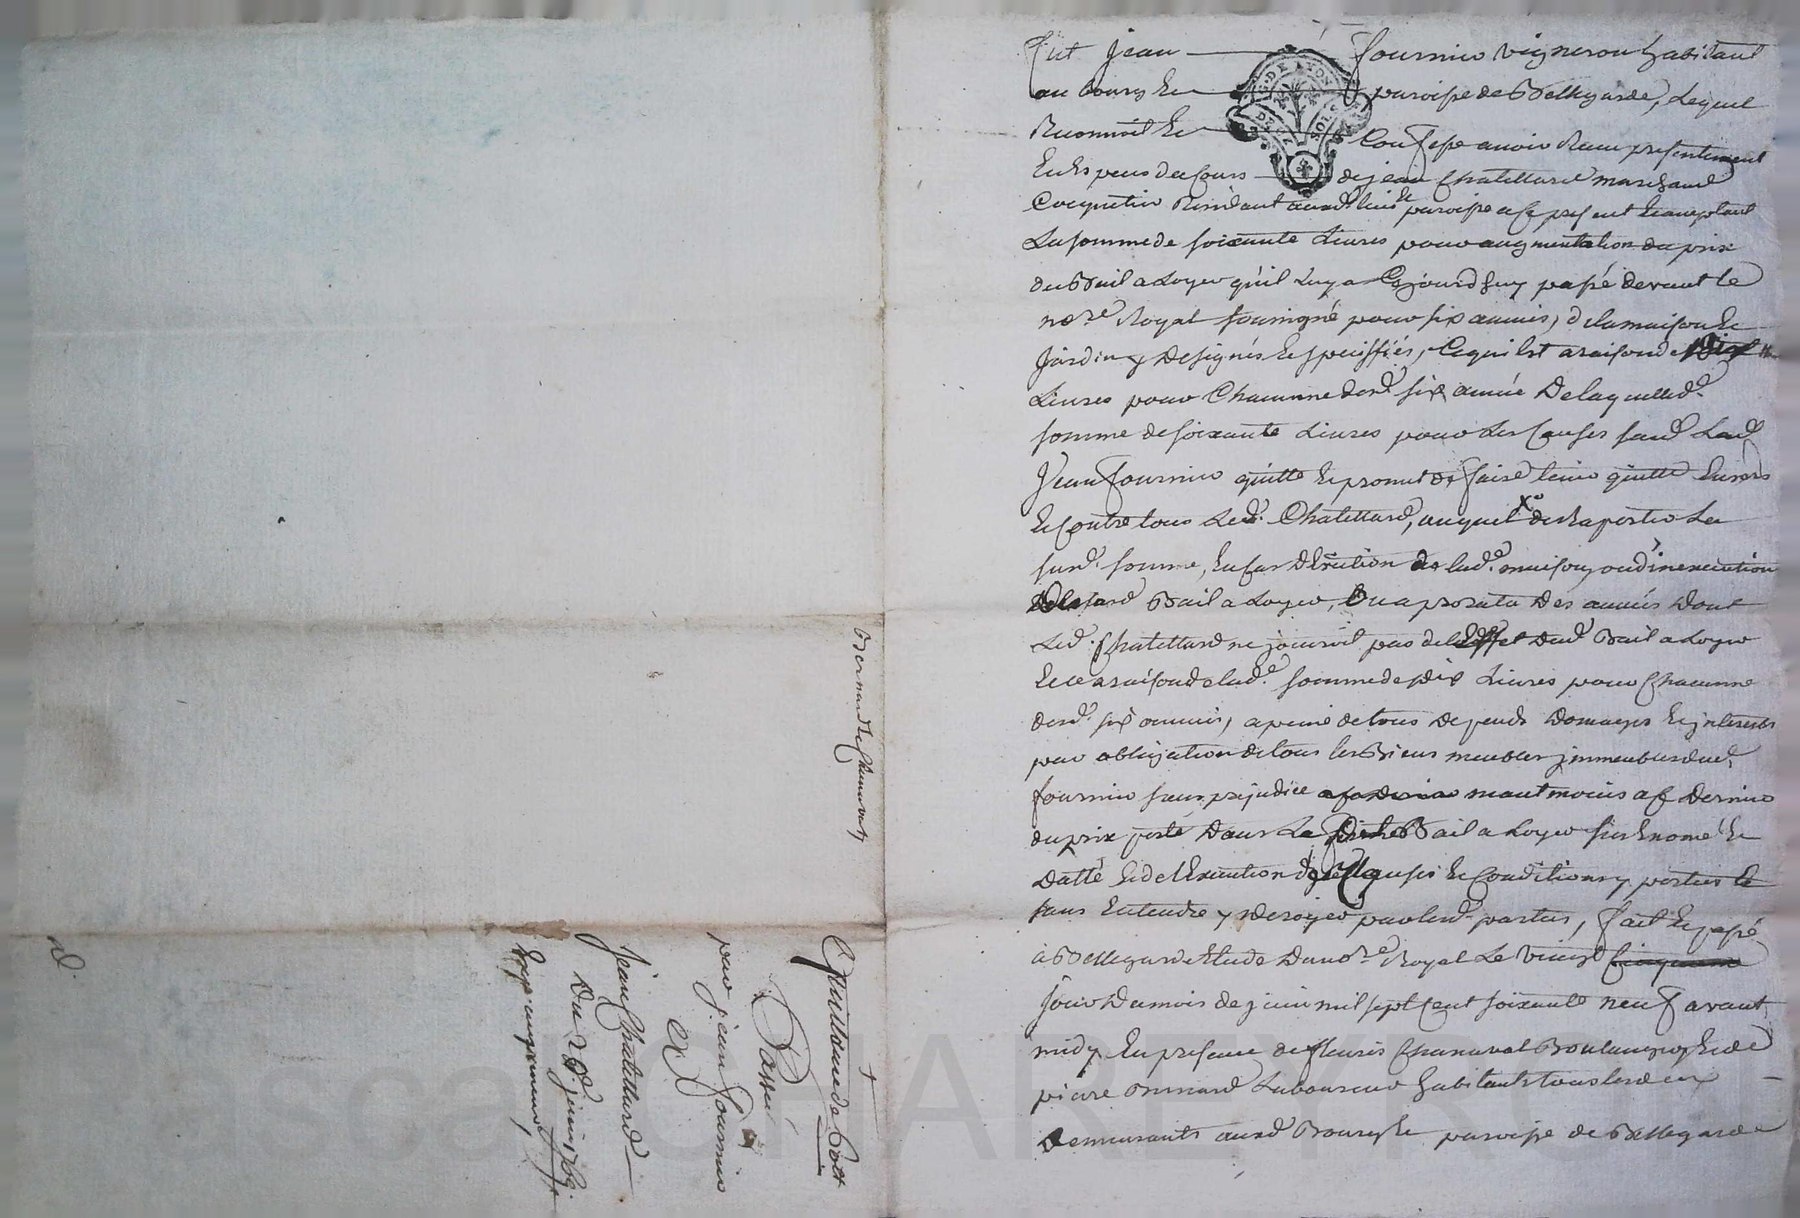 fut Jean fournier vigneron habitant
au bourg et paroisse de Bellegarde, Lequel
Reconnoit et Confesse avoir Receu presentement
de jean Chatellard marchand
Coquetier Residant aud. lieu et paroisse a ce present et acceptant
La somme de soixante Livres pour augmentation du prix
du Bail a Loyer qu'il Luy a Cejourd'huy passé devant le
nore. Royal soussigné pour six années, de la maison et
Jardin y designés et speciffiés, Ce qui Est a raison de Dix
Livres pour Chacunne desd. six année De laquelle de.
somme de soixante Livres pour Les Causes sud. Led.
Jean fournier quitte et promet de faire tenir quitte Envers
et Contre tous Led. Chatellard, auquel
susd. somme, En cas d'Eviction de lad. maison, ou d'inexecution
Bail a Loyer, Ou a prorata Des années Dont
Led. Chatellard ne jouiroit pas de l'Effet dud. Bail a Loyer
Et ce a raison de lad. somme de dix Livres pour Chacunne
desd. six années, a peine de tous depends Domages et jnterests
par obligation de tous les Biens meubles jmmeubles dud.
fournier sans prejudice neantmoins a ce Dernier
du prix porté Dans Le Bail a Loyer sus Enomé et
Datté Et de l'Execution des Clauses et Conditions y portées le
tout Entendre y Deroger par lesd. parties, fait et passé
à Bellegarde Etude Dud nore. Royal Le vingt
jour Du mois de juin mil sept cent soixante neuf avant
midy En presence de fleuris Chanaval Boulanger et de
piere Brunard Laboureur habitants tous les deux
Demeurants aud. Bourg et paroisse de Bellegarde
G. DE LYON
DEUX SOLS
Quittance de 60#
Passé
par jean fournier
a
Jean Chatellard
Du 20e. juin 1769.